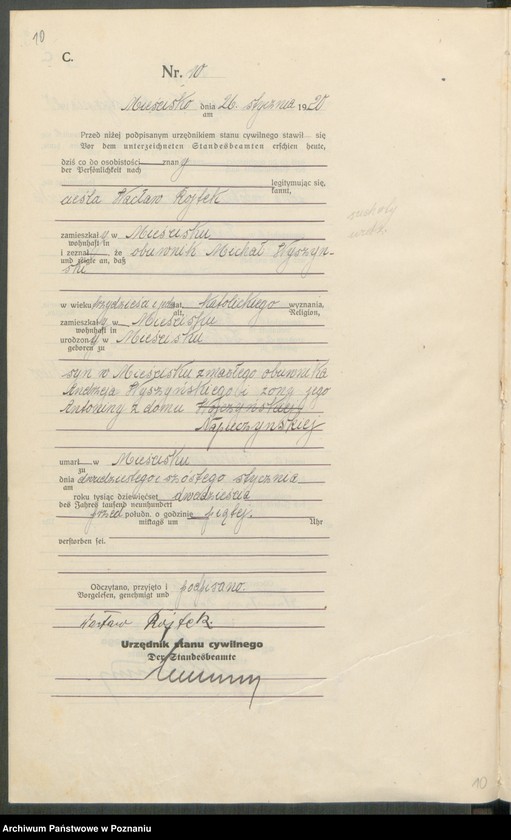 10
C.
Nr. 10
Mieścisko dnia 26. stycznia 1920
am
Przed niżej podpisanym urzędnikiem stanu cywilnego stawił się
Vor dem unterzeichneten Standesbeamten erschien heute,
dziś co do osobistości znany
der Persönlichkeit nach
legitymując się,
kannt,
cieśla Wacław Rojtek
zamieszkały w Mieścisku
wohnhaft in
i zeznał że obuwnik Michał Wyszyń-
und zeigte an, daß
ski
w wieku lat, katolickiego wyznania,
alt, Religion,
zamieszkały w Mieścisku
wohnhaft in
urodzony w Mieścisku
geboren zu
syn w Mieścisku zmarłego obuwnika
Andrzeja Wyszyńskiego i żony jego
Antoniny z domu
Napieczyńskiej
umarł w Mieścisku
zu
dnia dwudziestego szóstego stycznia
am
roku tysiąc dziewięćset dwudziestego
des Jahres tausend neunhundert
przed południ. o godzinie piątej.
mittags um Uhr
verstorben sei.
Odczytano, przyjęto i podpisano.
Vorgelesen, genehmigt und
Wacław Rojtek.
Urzędnik stanu cywilnego
Der Standesbeamte
10
Archiwum Państwowe w Poznaniu